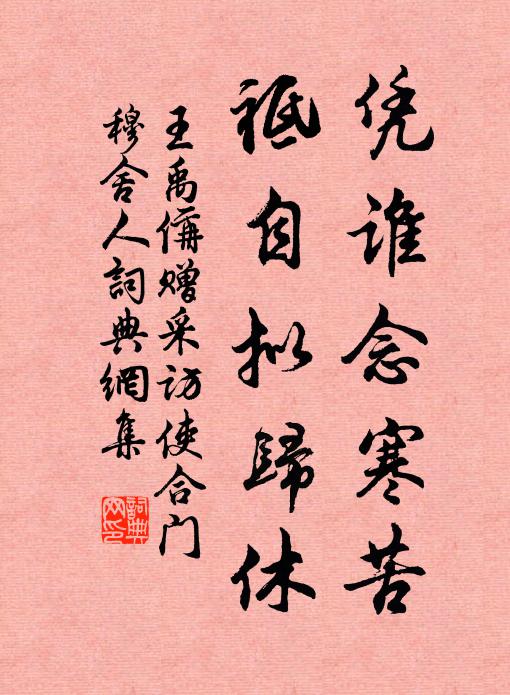 凭谁念寒苦
祗自拟歸休
王禹偁赠采访使合门
穆舍人詞典網集
詞典網印